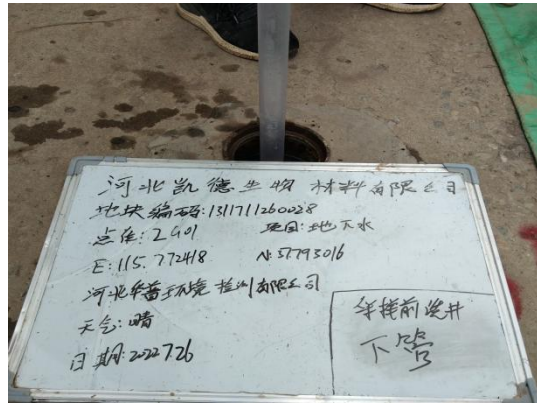 河北凯德生物材料有限公司
地块编码:1311711260028
点位:2G01 项目:地下水
E:115.772418 N:37.793016
河北华普环境检测有限公司
天气:晴
日期:2022.7.26
采样前洗井
下管